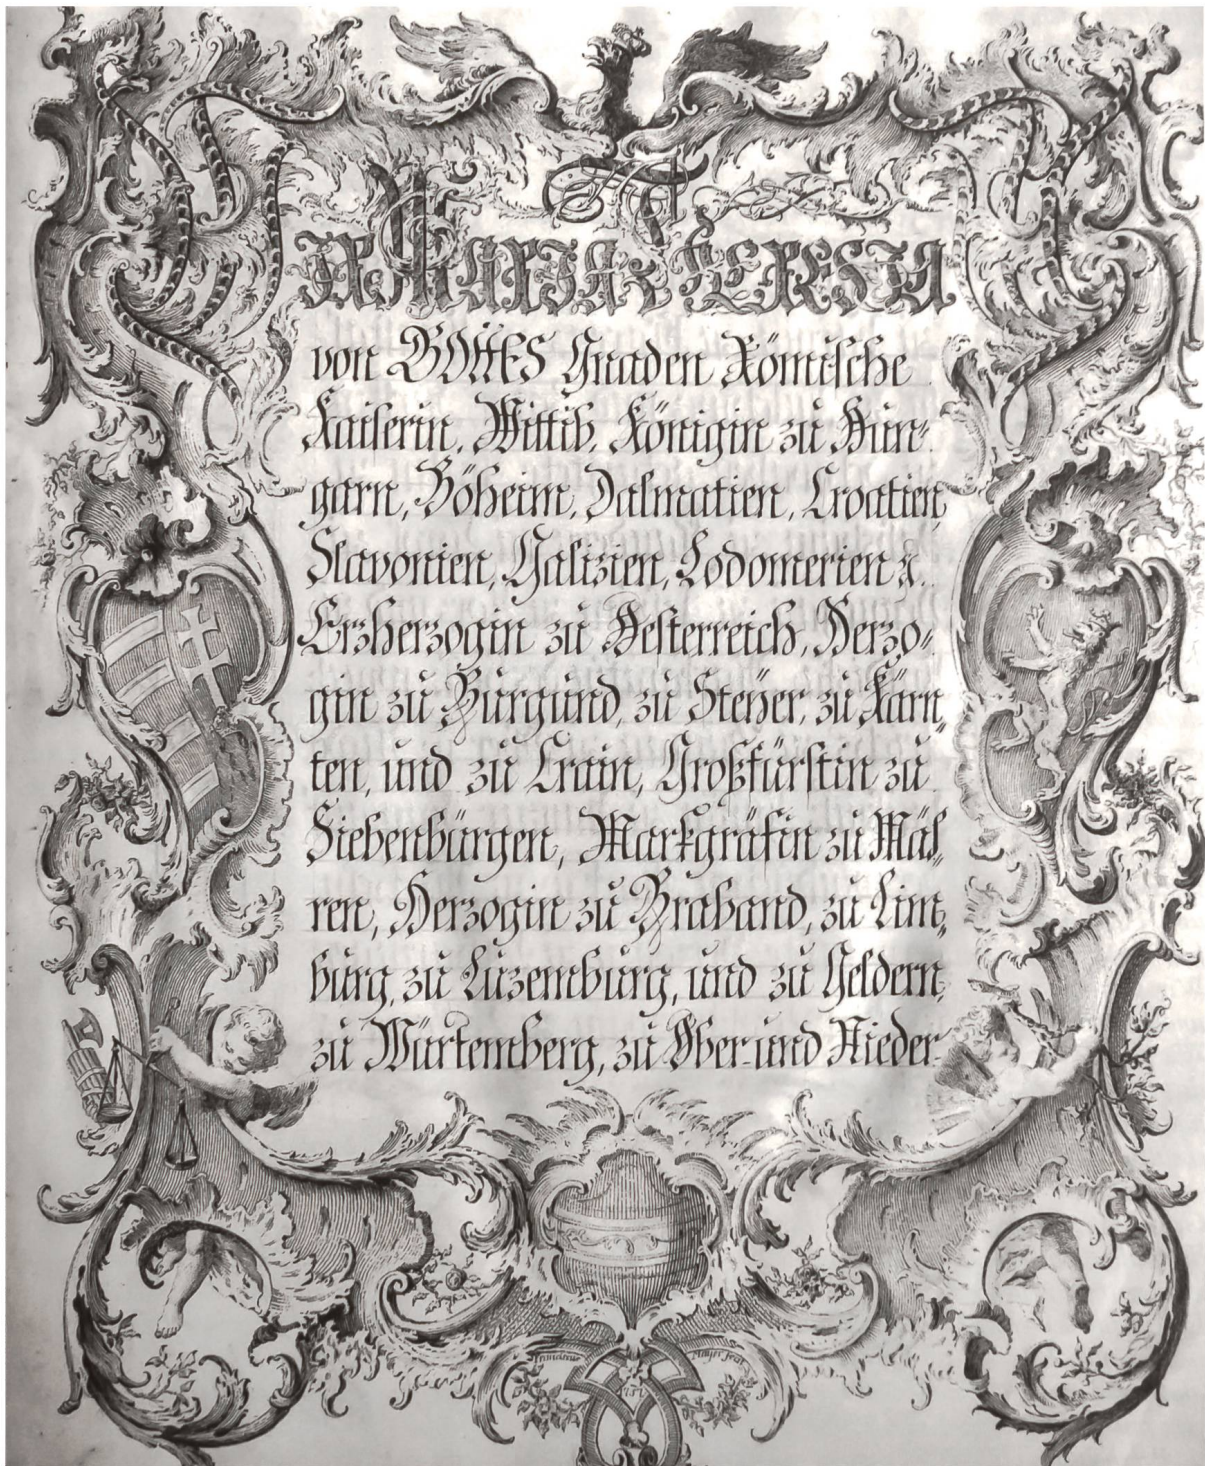 WIR MARIA THERESIA
von GOttES Gnaden Römische
Kaiserin, Wittib, Königin zu Hun-
garn, Böheim, Dalmatien, Croatien,
Slavonien, Galizien, Lodomerien ꝛc.
Erzherzogin zu Oesterreich, Herzo-
gin zu Burgund, zu Steyer, zu Kärn-
ten, und zu Crain, Großfürstin zu
Siebenbürgen, Markgräfin zu Mäh-
ren, Herzogin zu Braband, zu Lim-
burg, zu Luzemburg, und zu Geldern,
zu Würtemberg, zu Ober- und Nieder-
Mayer